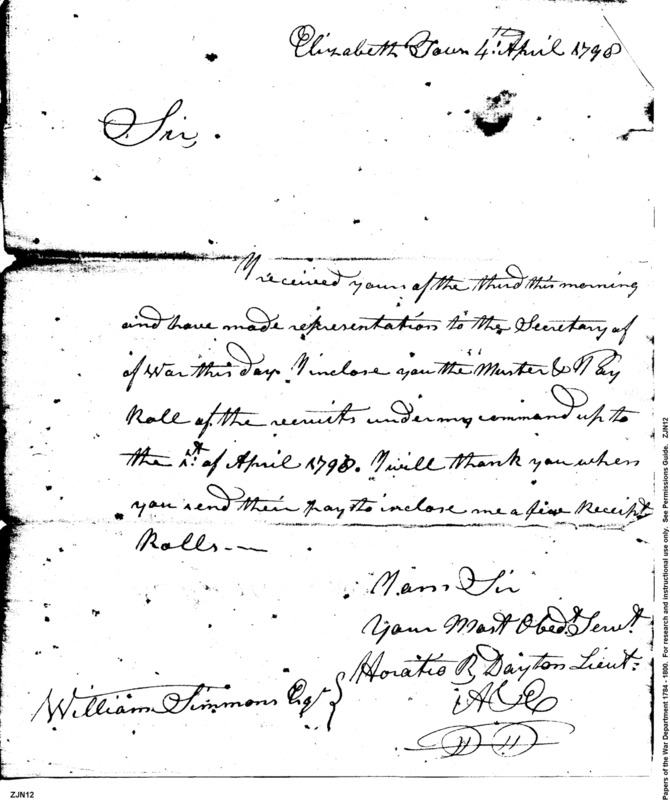 Elizabeth Town 4th April 1798
Sir,
I received yours of the third this morning
and have made representation to the Secretary of
of War this day. I inclose you the Muster & Pay
Roll of the recruits under my command up to
the 1st of April 1798. I will thank you when
you send their pay to inclose me a few Receipt
Rolls —
I am Sir
Your Most Obedt. Servt.
Horatio R Dayton Lieut:
William Simmons Esqr }
Papers of the War Department 1784 - 1800. For research and instructional use only. See Permissions Guide. ZJN12
ZJN12